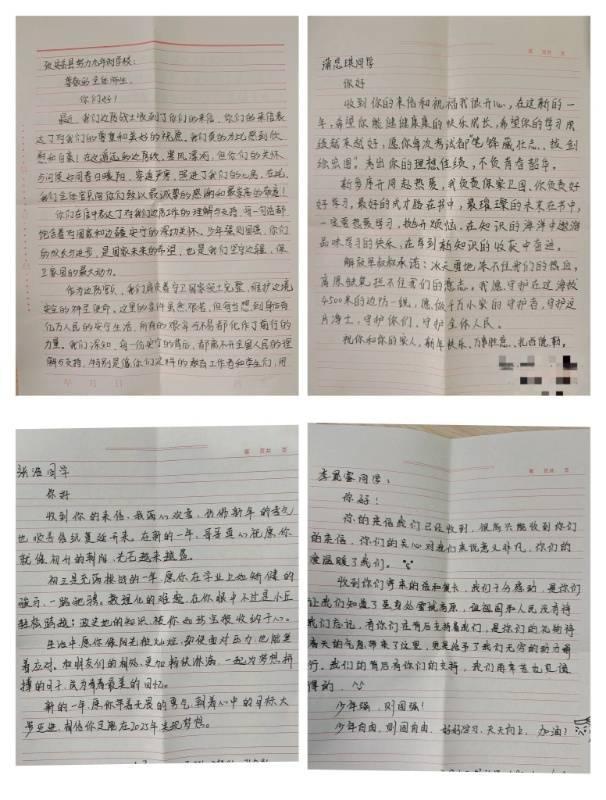 尊敬的全体师生：
你们好！
最近，我们边防战士收到了你们的来信，你们的来信表
达了对我们的尊重和美好的祝愿，我们真的为此感到欣
慰和自豪！
你们在信中表达了对我们边防工作的理解与支持，每一句话都
饱含着对国家和边疆安宁的深切关怀。少年强则国强，你们
的成长与进步，是国家未来的希望，也是我们坚守边疆、保
卫家园的最大动力。
作为边防官兵，我们肩负着守卫国家领土完整、维护边境
安全的神圣使命。这里的条件虽然艰苦，但每当想到身后有
亿万人民的安宁生活，所有的艰辛与不易都化作了前行的
力量。我们深知，每一份安宁的背后，都离不开全国人民的理
解与支持，特别是像你们这样的教育工作者和学生们，用
年 月 日
第 页共 页
蒲思琪同学
你好
收到你的来信和祝福我很开心，在这新的一
年，希望你能健健康康的快乐成长，希望你的学习成
绩越来越好，愿你每次考试都"笔锋藏壮志，投剑
绘宏图"考出你的理想佳绩，不负青春韶华。
新岁序开同赴热爱，我负责保家卫国，你负责好
好学习，最好的天才路在书中，最璀璨的未来在书中，
一定要热爱学习，抛开烦恼，在知识的海洋中遨游
品味学习的快乐，在得到新知识的收获中奋进。
解放军叔叔承诺：冰天雪地冻不住我们的热血，
高原缺氧拦不住我们的意志。我愿守护在这海拔
4500米的边防一线，愿做千万小家的守护者，守护这
片净土，守护你们、守护全体人民。
祝你和你的家人，新年快乐、万事胜意、扎西德勒。
第 页共 页
张浩同学
你好
收到你的来信，我满心欢喜，仿佛新年的喜气
也收着信纸蔓延开来。在新的一年，哥哥真心祝愿你
就像初升的朝阳，光芒越来越盛。
初三是充满挑战的一年，愿你在学业上如矫健的
骏马，一路驰骋。数理化的难题，在你眼中不过是小丘
轻松跨越；文史地的知识，被你如数家珍般收纳于心。
生活中，愿你像阳光般灿烂，即使面对压力，也能坚
着应对。和朋友们的相处，更加畅快淋漓，一起为梦想拼
搏的日子，成为青春最美的回忆。
新的一年，愿你带着无畏的勇气，朝着心中的目标大
步迈进，相信你定能在2025年实现梦想。
第 页共 页
同学：
你好！
你的来信我们已经收到，很高兴能收到你们
的来信，你们的关心对我们来说意义非凡，你们的
爱温暖了我们。
收到你们寄来的信和贺卡，我们十分感动，是你们
让我们知道了虽身处雪域高原，但祖国和人民没有将
我们忘记，有你们在背后支持着我们，是你们的礼物将
春天的气息带来了这里，更是给予了我们无穷的动力前
行。我们的背后有你们的支持，我们再辛苦也是值
得的。
少年强，则国强！
少年自由，则国自由，好好学习，天天向上，加油！